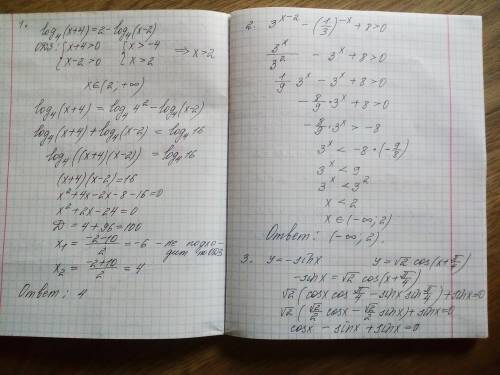 1.
log₄(x+4)=2-log₄(x-2)
ОДЗ: {x+4>0 {x>-4
{x-2>0 {x>2 ⇒ x>2
x∈(2;+∞)
log₄(x+4)=log₄4²-log₄(x-2)
log₄(x+4)+log₄(x-2)=log₄16
log₄((x+4)(x-2))=log₄16
(x+4)(x-2)=16
x²+4x-2x-8-16=0
x²+2x-24=0
D=4+96=100
x₁=(-2-10)/2=-6 - не подхо-
дит по ОДЗ
x₂=(-2+10)/2=4
Ответ: 4
2. 3^(x-2) - (1/3)^(-x) + 8>0
3^x/3² - 3^x + 8>0
1/9 · 3^x - 3^x + 8>0
-8/9 · 3^x + 8>0
-8/9 · 3^x > -8
3^x < -8 · (-9/8)
3^x < 9
3^x < 3²
x < 2
x∈(-∞; 2)
Ответ: (-∞; 2).
3. y=-sinx y=√2 cos(x+π/4)
-sinx=√2 cos(x+π/4)
√2(cosx cos π/4 - sinx sin π/4)+sinx=0
√2(√2/2 cosx - √2/2 sinx)+sinx=0
cosx - sinx + sinx=0